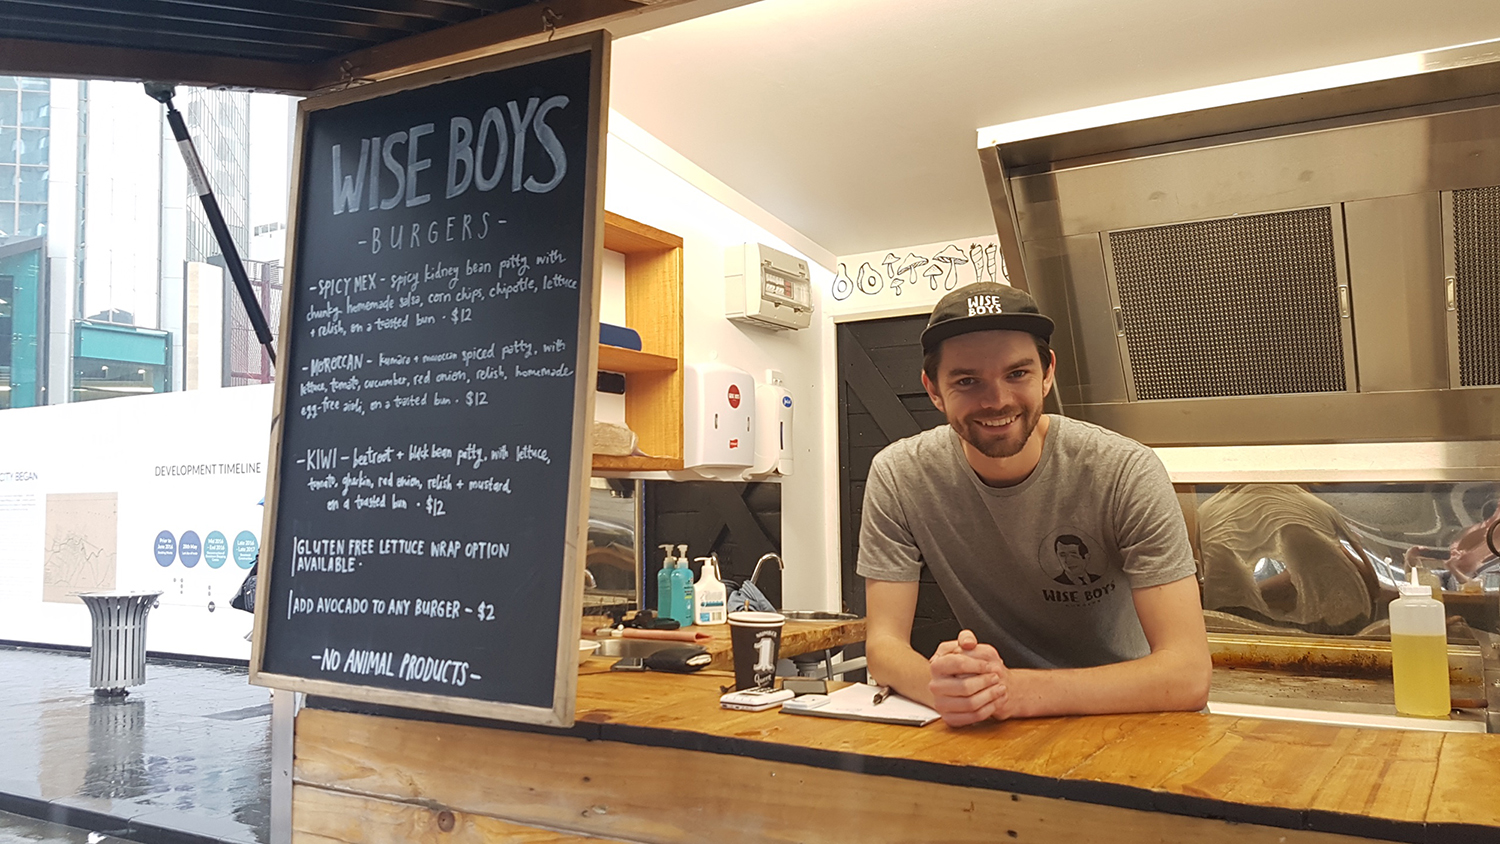 WISE BOYS
-BURGERS-
-SPICY MEX - spicy kidney bean patty with
chunky homemade salsa, corn chips, chipotle, lettuce
+ relish, on a toasted bun · $12
-MOROCCAN - kumara + moroccan spiced patty, with
lettuce, tomato, cucumber, red onion, relish, homemade
egg-free aioli, on a toasted bun · $12
-KIWI - beetroot + black bean patty, with lettuce,
tomato, gherkin, red onion, relish + mustard
on a toasted bun · $12
GLUTEN FREE LETTUCE WRAP OPTION
AVAILABLE·
ADD AVOCADO TO ANY BURGER - $2
-NO ANIMAL PRODUCTS-
WISE
BOYS
WISE BOYS
BURGERS
1
CITY BEGAN
DEVELOPMENT TIMELINE